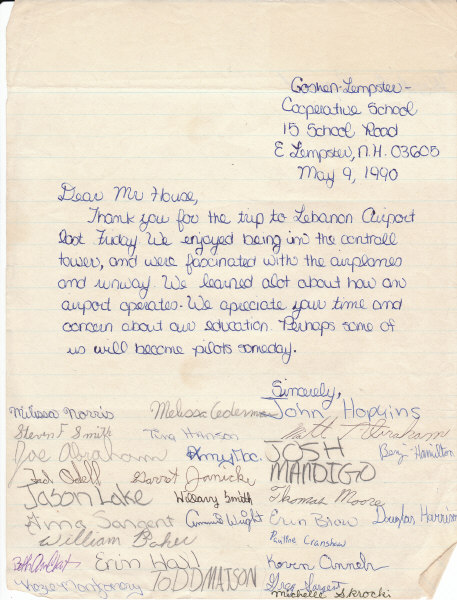 Goshen-Lempster-
Cooperative School
15 School Road
E Lempster, N.H. 03605
May 9, 1990
Dear Mr House,
Thank you for the trip to Lebanon Airport
last Friday. We enjoyed being in the controll
tower, and were fascinated with the airplanes
and runway. We learned alot about how an
airport operates. We apreciate your time and
concern about our education. Perhaps some of
us will become pilots someday.
Sincerely,
Melissa Norris Melissa Cederman John Hopkins
Steven F Smith Tina Hanson Matt Abraham
Joe Abraham Amy JOSH Benji Hamilton
Jack Odell Garrot Janicki MANDIGO
Jason Lake Hillary Smith Thomas Moore
Anna Sargent Wright Erin Brow Douglas Harrison
William Baker Pauline Cranshaw
Beth Erin Hall Karen
Montgomery TODD MATSON Greg Sargent
Michelle Skrocki